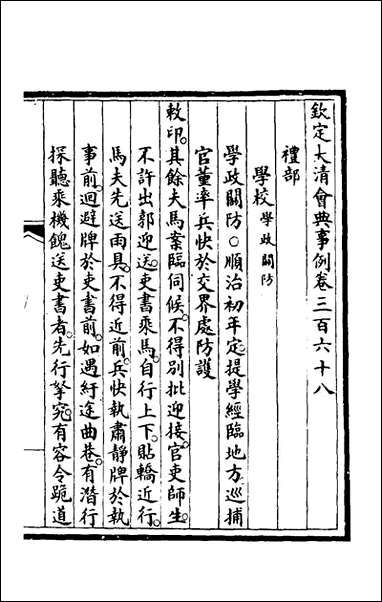 欽定大清會典事例卷三百六十八
禮部
學校學政關防
學政關防○順治初年定提學經臨地方巡捕
官董率兵快於交界處防護
敕印其餘夫馬案臨伺候不得別批迎接官吏師生
不許出郭迎送吏書乘馬自行上下貼轎近行
馬夫先送雨具不得近前兵快執肅靜牌於執
事前迴避牌於吏書前如遇紆途曲巷有潛行
探聽乘機餽送吏書者先行拏究有容令跪道